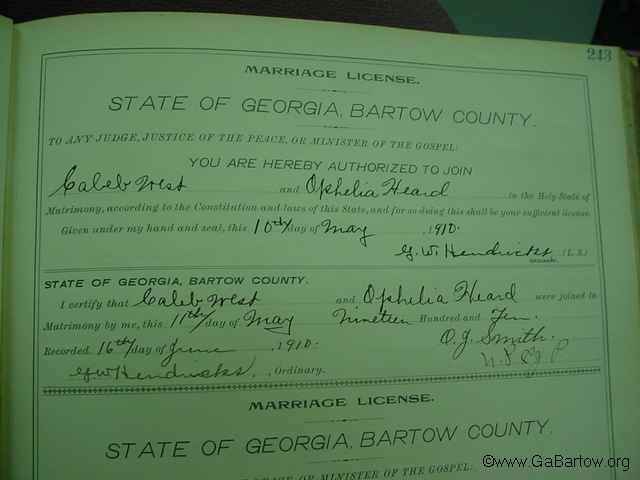 243
MARRIAGE LICENSE.
STATE OF GEORGIA, BARTOW COUNTY.
TO ANY JUDGE, JUSTICE OF THE PEACE, OR MINISTER OF THE GOSPEL:
YOU ARE HEREBY AUTHORIZED TO JOIN
Caleb West and Ophelia Heard in the Holy State of
Matrimony, according to the Constitution and laws of this State, and for so doing this shall be your sufficient license.
Given under my hand and seal, this 10th day of May, 1910.
G.W. Hendricks (L. S.)
ORDINARY.
STATE OF GEORGIA, BARTOW COUNTY.
I certify that Caleb West and Ophelia Heard were joined in
Matrimony by me, this 11th day of May Nineteen Hundred and Ten.
Recorded 16th day of June, 1910. O.J. Smith.
G.W Hendricks, Ordinary. N.P. & J.P
MARRIAGE LICENSE.
STATE OF GEORGIA, BARTOW COUNTY.
PEACE, OR MINISTER OF THE GOSPEL:
©www.GaBartow.org